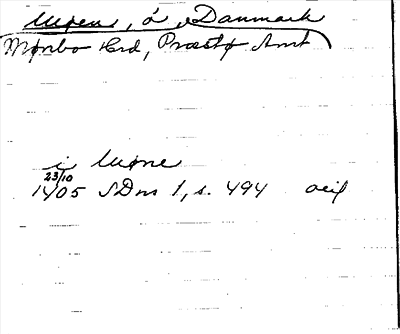 Møen, ö, Danmark
Mønbo Hrd, Præstø Amt
i Møne
23/10
1405 SDns 1, s. 494